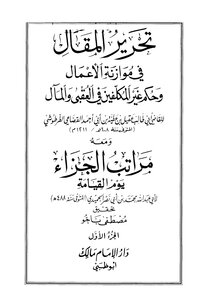 تحرير المقال
في موازنة الأعمال
وحكم غير المكلفين في العقبى والمآل
للقاضي أبي طالب عقيل بن عطية بن أبي أحمد القضاعي الطرطوشي
ومعه
مراتب الجزاء
يوم القيامة
لأبي عبد الله محمد بن أبي نصر الحميدي (المتوفى سنة ٤٨٨هـ)
تحقيق
مصطفى باجو
الجزء الأول
دار الإمام مالك
أبوظبي